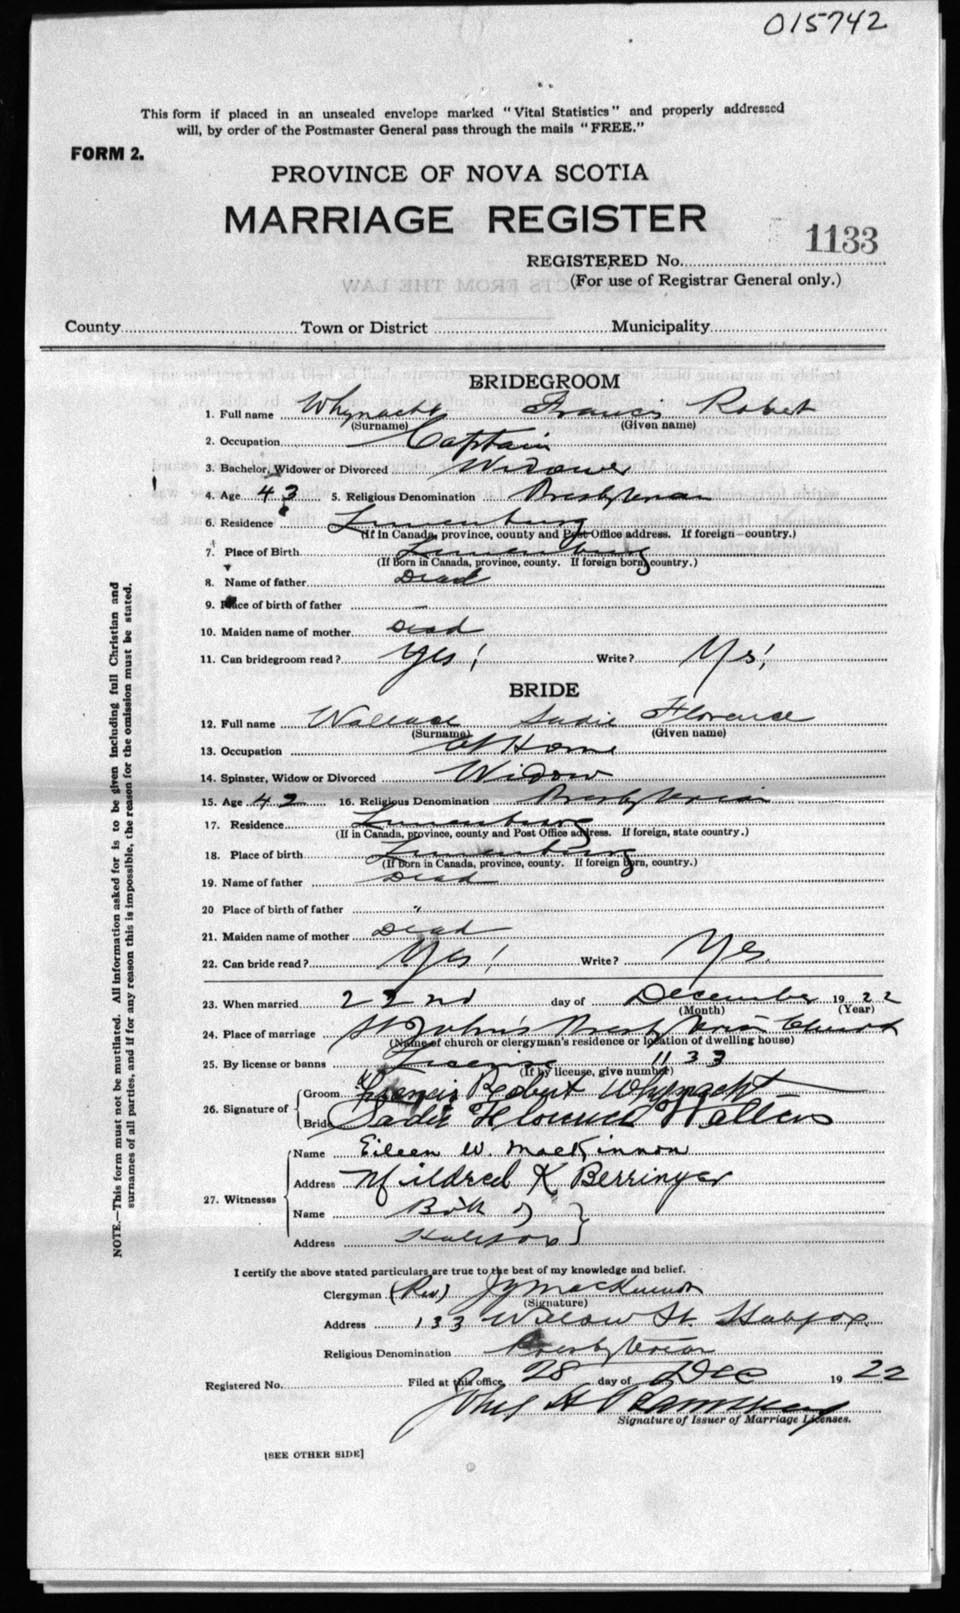 015742
This form if placed in an unsealed envelope marked "Vital Statistics" and properly addressed
will, by order of the Postmaster General pass through the mails "FREE."
FORM 2.
PROVINCE OF NOVA SCOTIA
MARRIAGE REGISTER
1133
REGISTERED No.
(For use of Registrar General only.)
County Town or District Municipality
BRIDEGROOM
1. Full name Whynacht Francis Robert
(Surname) (Given name)
2. Occupation Captain
3. Bachelor, Widower or Divorced Widower
4. Age 43 5. Religious Denomination Presbyterian
6. Residence Lunenburg
(If in Canada, province, county and Post Office address. If foreign—country.)
7. Place of Birth Lunenburg
(If born in Canada, province, county. If foreign born, country.)
8. Name of father Dead
9. Place of birth of father —
10. Maiden name of mother Dead
11. Can bridegroom read? Yes! Write? Yes!
BRIDE
12. Full name Wallace Sadie Florence
(Surname) (Given name)
13. Occupation At Home
14. Spinster, Widow or Divorced Widow
15. Age 42 16. Religious Denomination Presbyterian
17. Residence Lunenburg
(If in Canada, province, county and Post Office address. If foreign, state country.)
18. Place of birth Lunenburg
(If born in Canada, province, county. If foreign born, country.)
19. Name of father Dead
20 Place of birth of father "
21. Maiden name of mother Dead
22. Can bride read? Yes! Write? Yes.
23. When married 22nd day of December 1922
(Month) (Year)
24. Place of marriage St John's Presbyterian Church
(Name of church or clergyman's residence or location of dwelling house)
25. By license or banns License 1133
(If by license, give number)
26. Signature of Groom Francis Robert Whynacht
Bride Sadie Florence Walters
27. Witnesses
Name Eileen W. MacKinnon
Address Mildred K Berringer
Name Both of
Address Halifax
I certify the above stated particulars are true to the best of my knowledge and belief.
Clergyman (Rev.) MacKinnon
(Signature)
Address 133 Willow St. Halifax
Religious Denomination Presbyterian
Registered No. Filed at this office, 28 day of Dec 1922
Signature of Issuer of Marriage Licenses.
[SEE OTHER SIDE]
NOTE.—This form must not be mutilated. All information asked for is to be given including full Christian and
surnames of all parties, and if for any reason this is impossible, the reason for the omission must be stated.